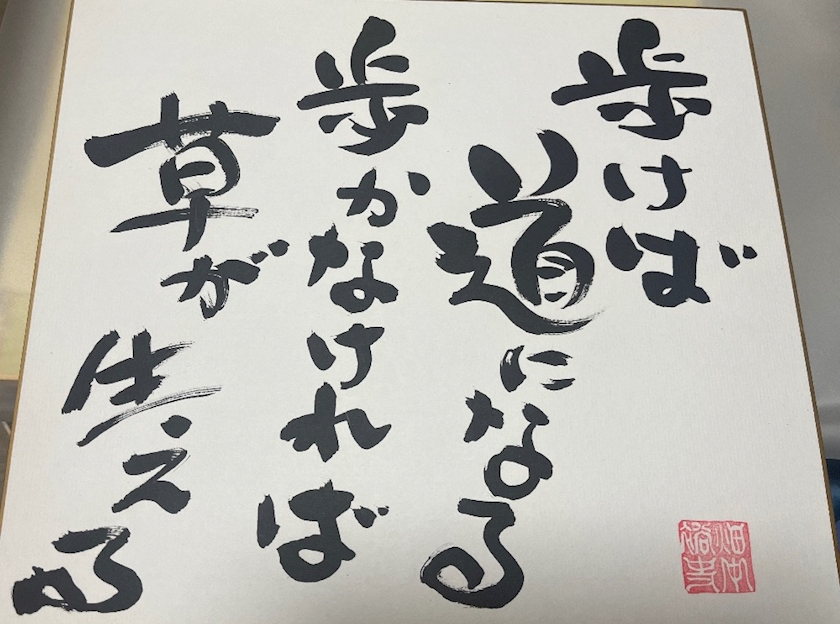 歩けば
道になる
歩かなければ
草が生える